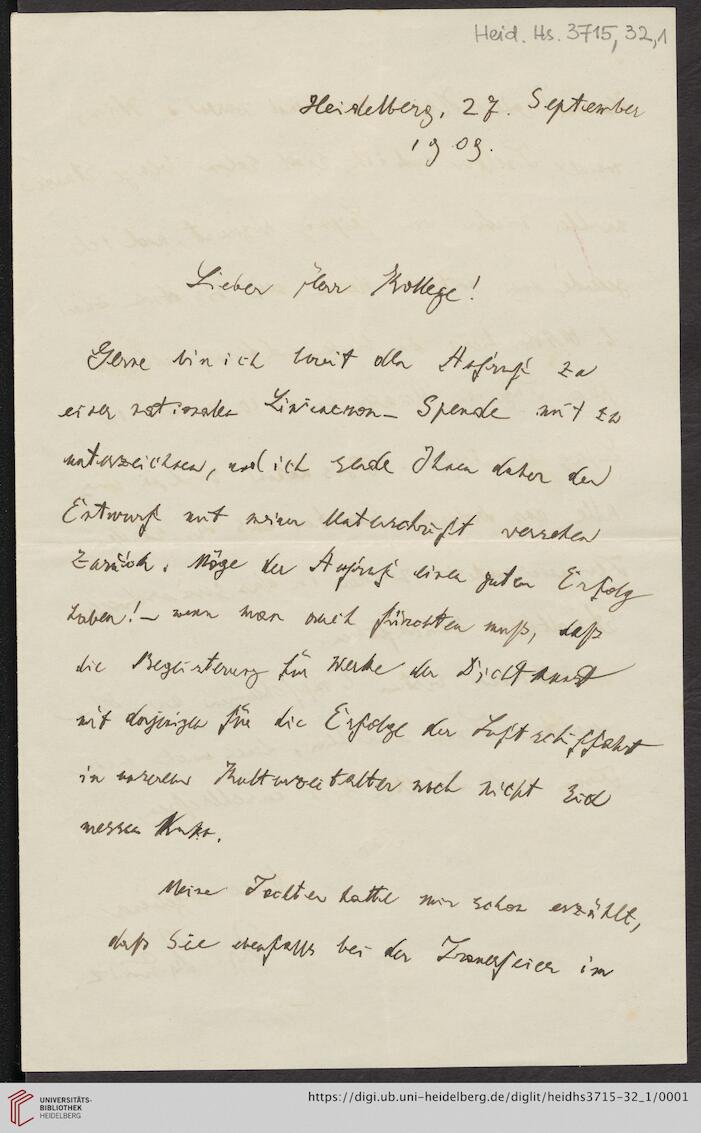 Heid. Hs. 3715, 32,1
Heidelberg, 27. September
1909.
Lieber Herr Kollege!
Gerne bin ich bereit den Aufruf zu
einer nationalen Liliencron-Spende mit zu
unterzeichnen, und ich sende Ihnen daher den
Entwurf mit meiner Unterschrift versehen
zurück. Möge der Aufruf einen guten Erfolg
haben! – wenn man auch fürchten muß, daß
die Begeisterung für Werke der Dichtkunst
mit derjenigen für die Erfolge der Luftschiffahrt
in unserem Kulturzeitalter noch nicht sich
messen kann.
Meine Tochter hatte mir schon erzählt,
daß Sie ebenfalls bei der Trauerfeier im
UNIVERSITÄTS-
BIBLIOTHEK
HEIDELBERG
https://digi.ub.uni-heidelberg.de/diglit/heidhs3715-32_1/0001